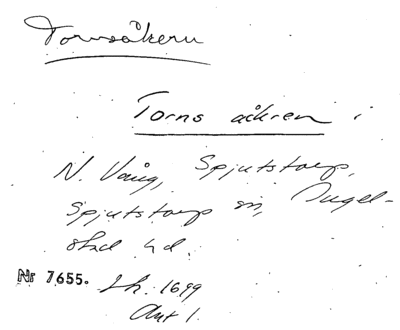 Tornsåkern
Torns åkren i
N. Vång, Spjutstorp,
Spjutstorp sn, Ingel-
stad hd.
Nr 7655. Lh. 1699
Akt 1.